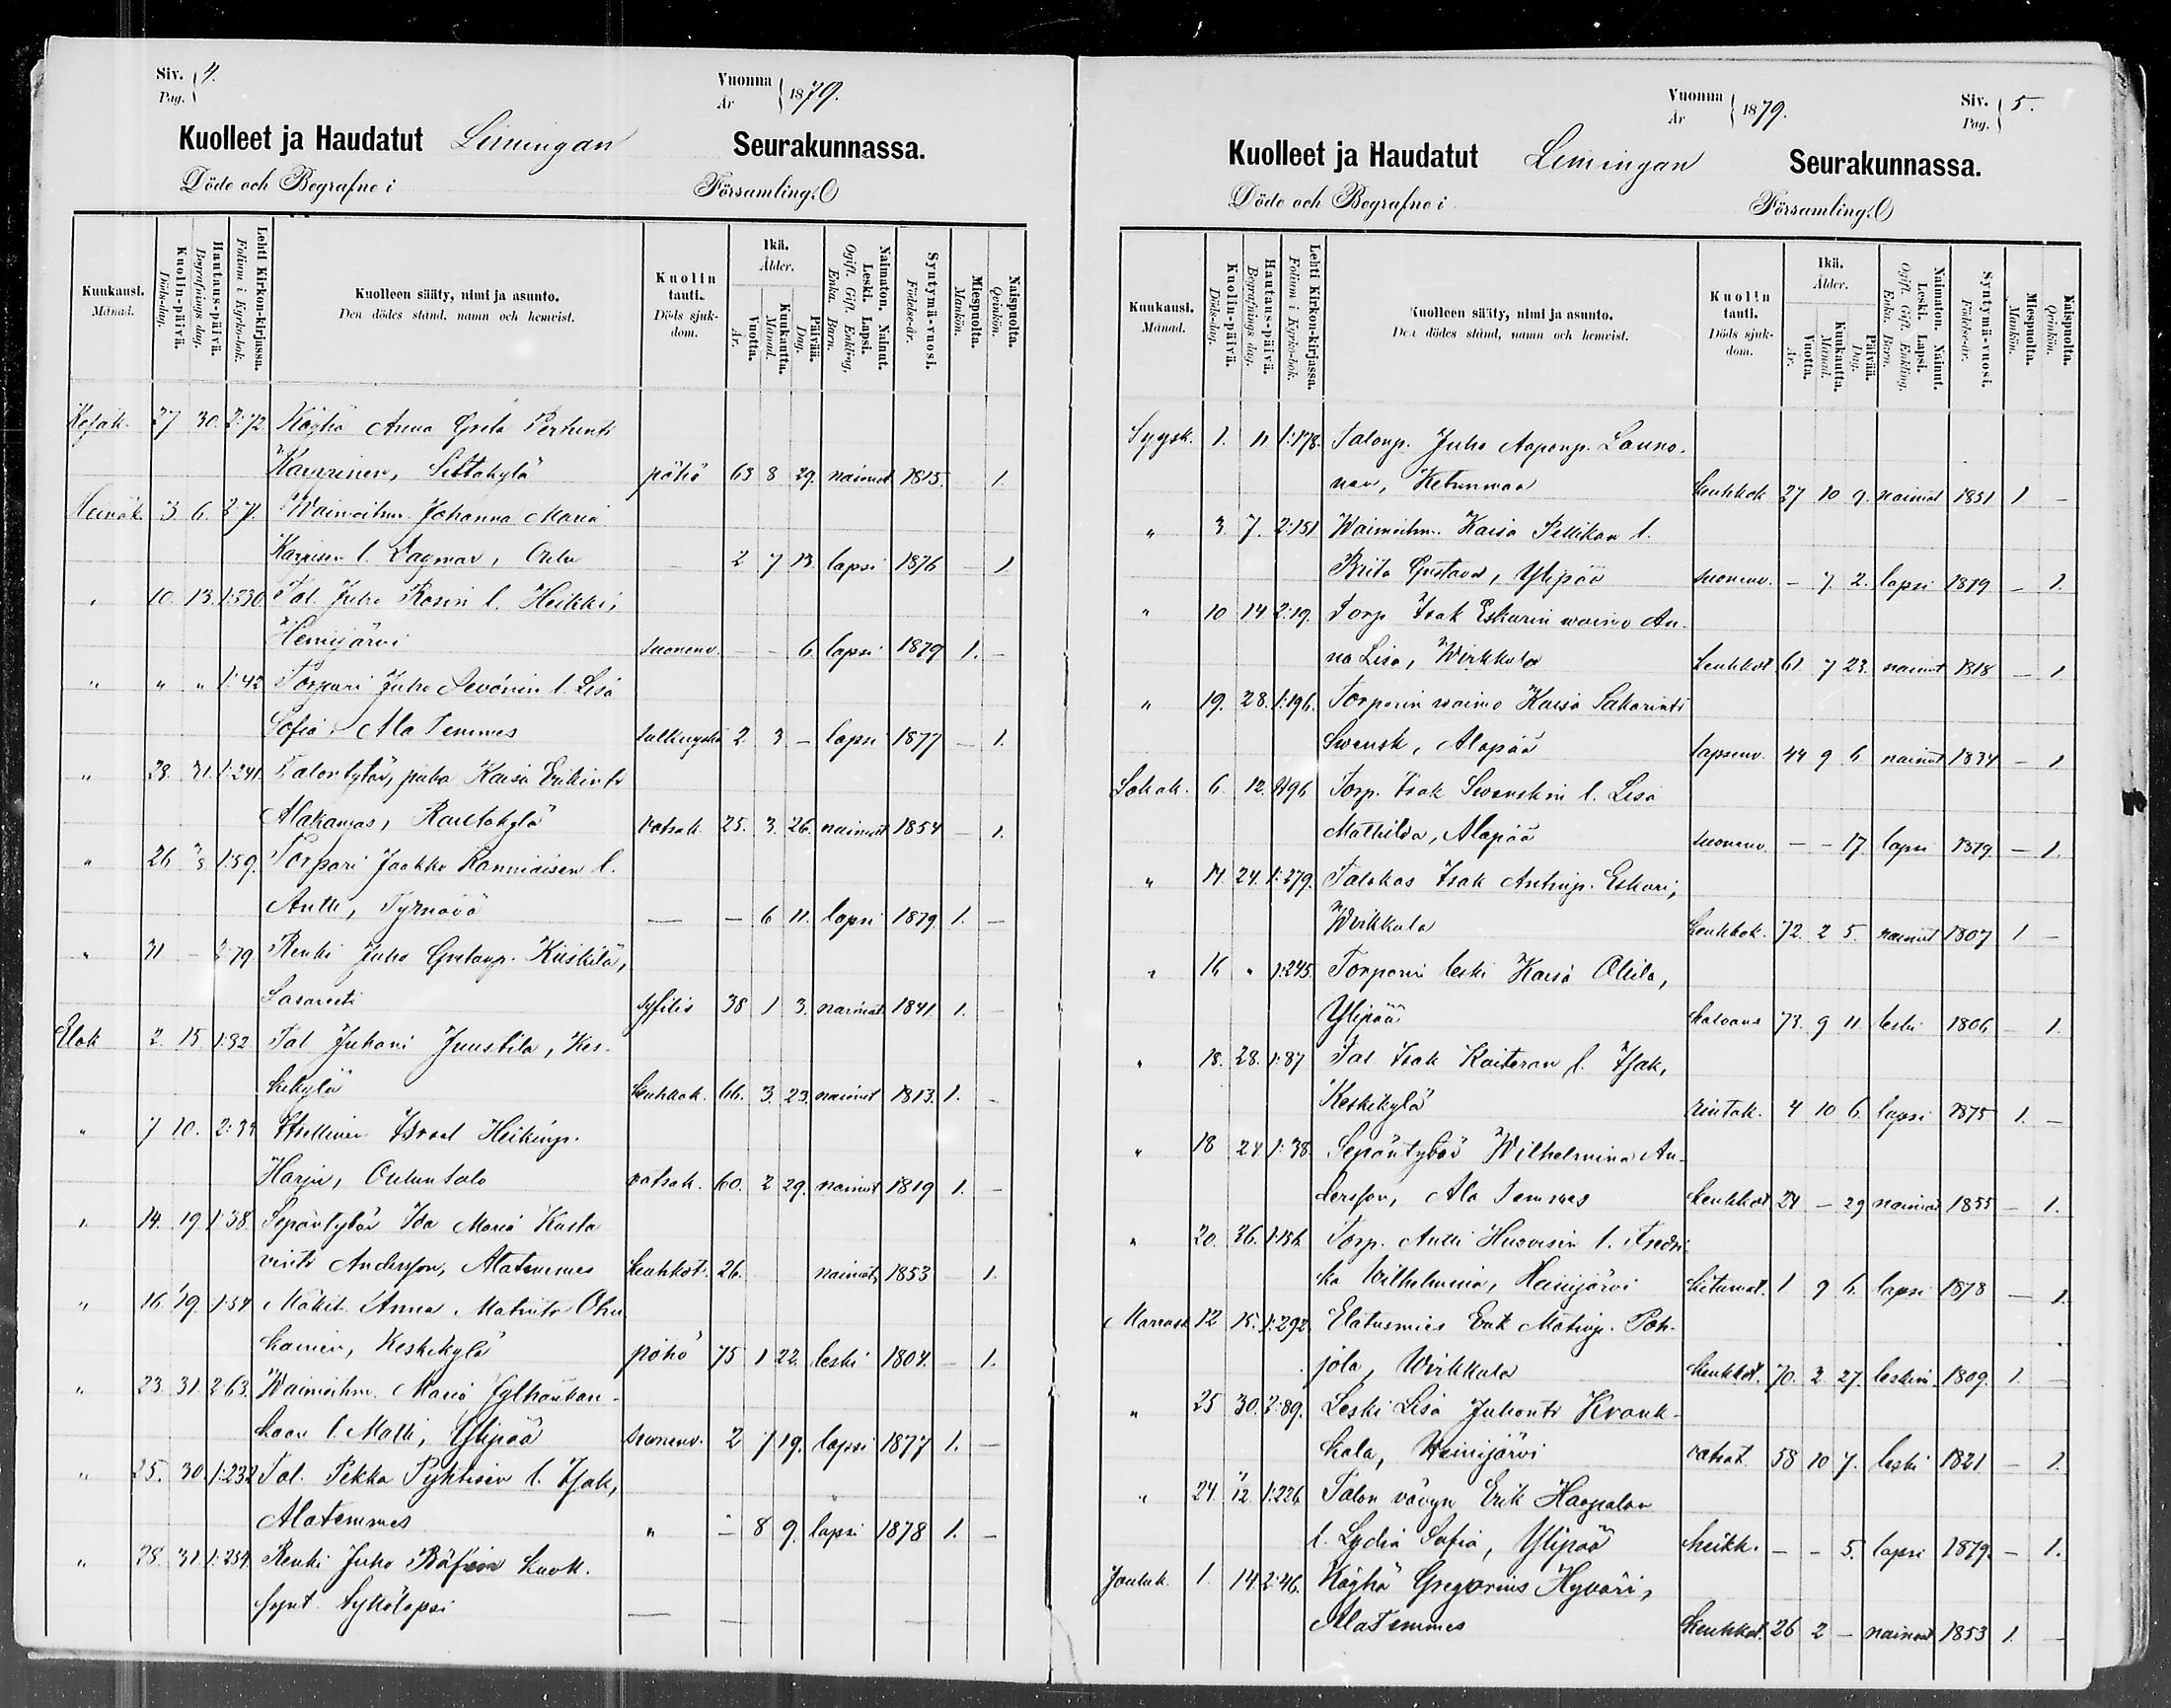 Siv. 4.
Pag.
Vuonna 1879.
År
Kuolleet ja Haudatut Limingan Seurakunnassa.
Döde och Begrafne i Församling.
Kuukausi. Månad.
Kuolin-päivä. Döds-dag.
Hautaus-päivä. Begrafnings dag.
Lehti Kirkon-kirjassa. Folium i Kyrko-bok.
Kuolleen sääty, nimi ja asunto.
Den dödes stånd, namn och hemvist.
Kuolin tauti. Döds sjukdom.
Ikä. Ålder.
Vuotta. År.
Kuukautta. Månad.
Päivää. Dag.
Naimaton. Nainut. Leski. Lapsi. Ogift. Gift. Enkling. Enka. Barn.
Syntymä-vuosi. Födelse-år.
Miespuolta. Mankön.
Naispuolta. Qvinkön.
Kesäk. 27 30. 2:72 Köyhä Anna Greta Pertunt.
Karppinen, Settakylä pöhö 63 8 29. naimat 1815. 1.
Heinäk. 3 6. 2:71. Waimoihm. Johanna Maria
Karpisen l. Dagmar, Oulu — 2 7 13. lapsi 1876 — 1
„ 10. 13. 1:330. Tal. Juho Rosin l. Heikki,
Heinijärvi suonenv. — — 6. lapsi 1879 1. —
„ „ „ 1:42 Torpari Juho l. Lisa
Sofia, Ala Temmes 2. 3 — lapsi 1877 — 1.
„ 28. 31. 1:241. Talontytär, piika Kaisa Erikint.
Alakangas, Rantakylä vatsak. 25. 3. 26. naimat 1854 — 1.
„ 26 1:59. Torpari Jaakko l.
Antti, Tyrnävä — — 6 11. lapsi 1879. 1. —
„ 31 — 2:79 Renki Juho Kiiskilä,
Lasareti syfilis 38 1 3. naimat. 1841 1. —
Elok 2. 15. 1:32 Tal Juhani Juustila, Kes-
kikylä keuhkok. 66. 3. 23. nainut 1813. 1. —
„ 7 10. 2:34 Itsellinen Israel Heikinp.
Harju, Oulunsalo vatsak. 60. 2 29. nainut 1819 1. —
„ 14. 19 1:38 Sepäntytär Ida Maria Kusta
vint. Andersson, Alatemmes keuhkot. 26. naimat. 1853 1.
„ 16 19. 1:54 Mökit. Anna Matint.
kainen, Keskikylä pöhö 75 1 22. leski 1804. — 1.
„ 23. 31. 2:63. Waimoihm. Maria Jylhänkan-
kaan l. Matti, Ylipää suonenv. 2 7 19. lapsi 1877 1. —
„ 25. 30 1:232 Tal. Pekka Pyhtisen l. Isak,
Alatemmes „ — 8 9. lapsi 1878 1. —
„ 28. 31. 1:254. Renki Juho kuol.
synt. tyttölapsi — —
Vuonna 1879.
År
Siv. 5.
Pag.
Kuolleet ja Haudatut Limingan Seurakunnassa.
Döde och Begrafne i Församling.
Kuukausi. Månad.
Kuolin-päivä. Döds-dag.
Hautaus-päivä. Begrafnings dag.
Lehti Kirkon-kirjassa. Folium i Kyrko-bok.
Kuolleen sääty, nimi ja asunto.
Den dödes stånd, namn och hemvist.
Kuolin tauti. Döds sjukdom.
Ikä. Ålder.
Vuotta. År.
Kuukautta. Månad.
Päivää. Dag.
Naimaton. Nainut. Leski. Lapsi. Ogift. Gift. Enkling. Enka. Barn.
Syntymä-vuosi. Födelse-år.
Miespuolta. Mankön.
Naispuolta. Qvinkön.
Syysk. 1. 11 1:178. Talonp. Juho Aaponp. Launo-
nen, Ketunmaa keuhkok 27 10 9. naimat 1851 1 —
„ 3. 7. 2:151 Waimoihm. Kaisa Pellikan l.
Brita Gustava, Ylipää suonenv. — 7. 2. lapsi 1879 — 1.
„ 10 14 2:19. Torp. Isak Eskurin waimo An-
na Lisa, Wirkkula keuhkot 61 7 23. nainut 1818 — 1
„ 19. 28. 1:196. Torparin waimo Kaisa Sakarint.
Swensk, Alapää lapsenv. 44 9 6 nainut 1834 — 1
Lokak. 6. 12. 1:196 Torp. Isak Swenskin l. Lisa
Mathilda, Alapää suonenv. — — 17. lapsi 1879. — 1.
„ 17. 24. 1:279. Talokas Isak Antinp. Eskuri,
Wirkkula keuhkok. 72. 2 5. nainut 1807 1 —
„ 16 „ 1:245. Torparin leski Kaisa Ollila,
Ylipää 73. 9 11. leski 1806 — 1.
„ 18. 28. 1:87 Tal. Isak Kaiteran l. Isak,
Keskikylä rintak. 4 10 6. lapsi 1875 1. —
„ 18 24 1:38. Sepäntytär Wilhelmina An-
dersson, Ala Temmes keuhkot 24 — 29 naimat 1855 — 1.
„ 20. 26. Torp. Antti Huovisen l. Fredri-
ka Wilhelmina, Heinijärvi 1 9 6. lapsi 1878 — 1.
Marrask 12 15. 1:292. Elatusmies Erik Matinp. Poh-
jola, Wirkkula keuhkot. 70. 2 27. leskim. 1809. 1. —
„ 25 30. 2:89. Leski Lisa Juhont. Krank-
kala, Heinijärvi vatsat. 58 10 7. leski 1821 — 1.
„ 24 1:226 Talon vävyn Erik Haapalan
l. Lydia Sofia, Ylipää heikk. — — 5. lapsi 1879. — 1.
Jouluk. 1. 14. 2:46. Köyhä Gregorius Hyväri,
Alatemmes keuhkot. 26 2 — naimat 1853 1. —